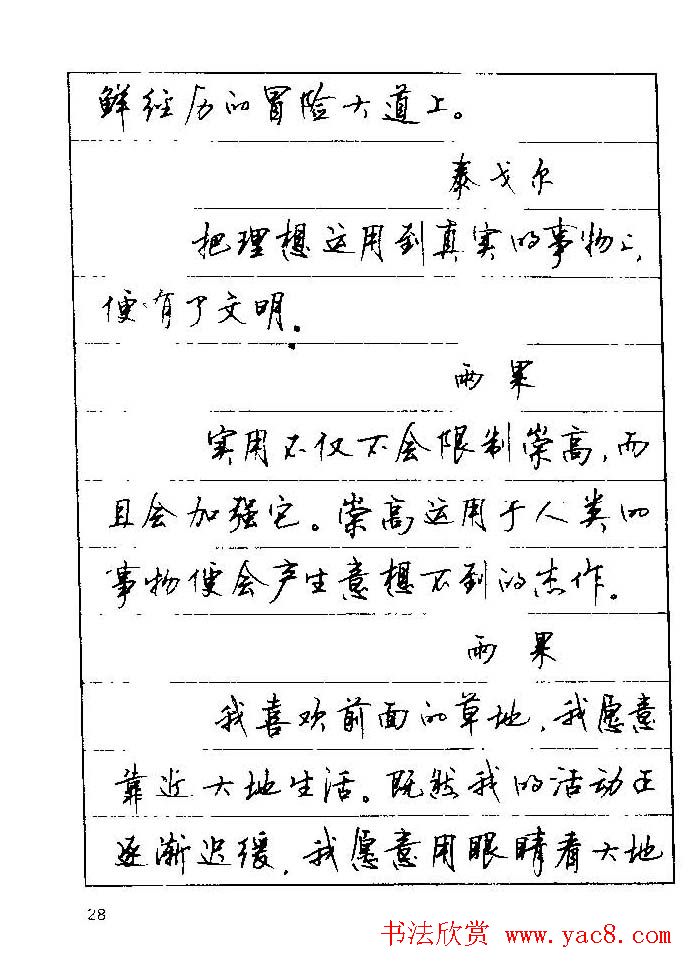 鲜经历的冒险大道上。
泰戈尔
把理想运用到真实的事物上,
便有了文明.
雨果
实用不仅不会限制崇高,而
且会加强它。崇高运用于人类的
事物便会产生意想不到的杰作。
雨果
我喜欢前面的草地,我愿意
靠近大地生活。既然我的活动正
逐渐迟缓,我愿意用眼睛看大地
28
书法欣赏 www.yac8.com